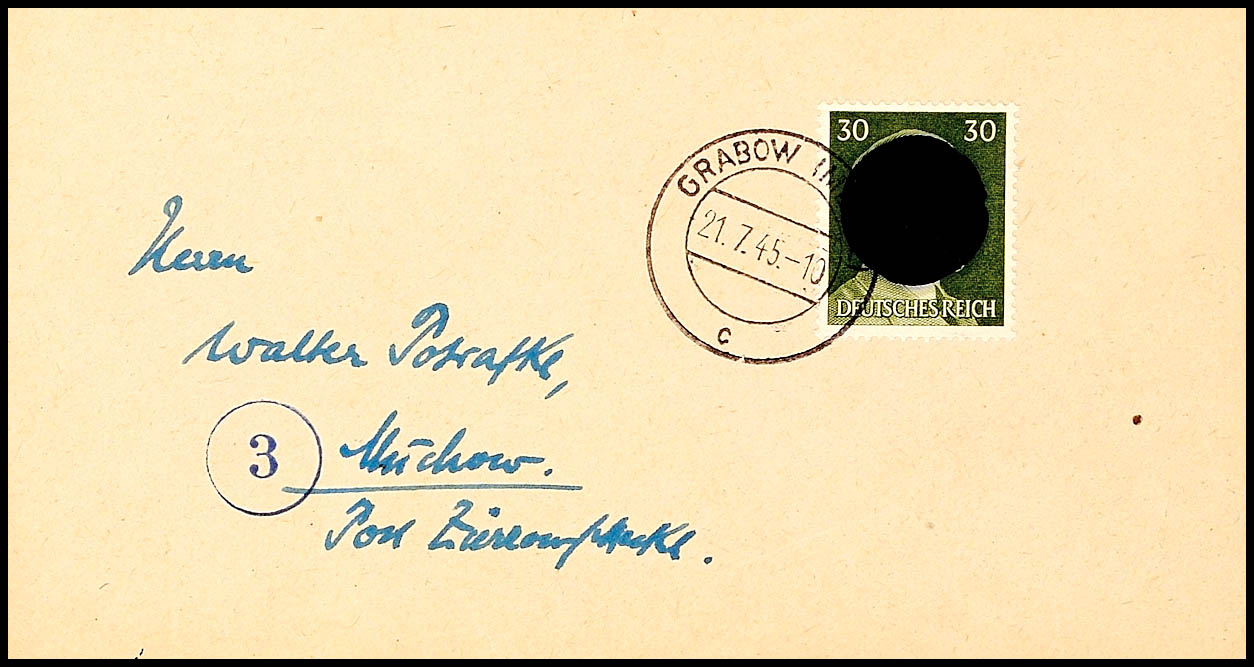 30 30
GRABOW
21.7.45.-10
c
DEUTSCHES REICH
Herrn
Walter Potrafke,
3
Muchow.
Post